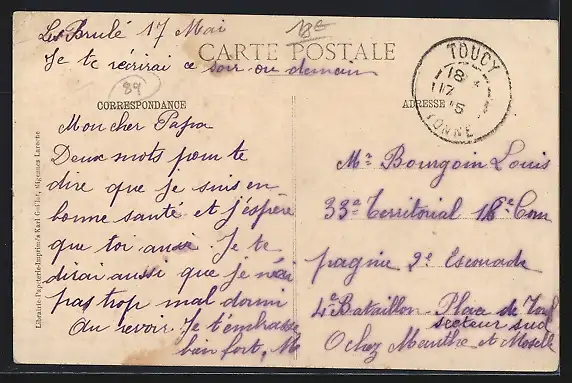 Les Brulé 17 Mai
Je te réécrirai ce soir ou demain
18e
CARTE POSTALE
89
CORRESPONDANCE
ADRESSE
TOUCY
18
17
YONNE
Mon cher Papa
Deux mots pour te
dire que je suis en
bonne santé et j'espère
que toi aussi Je te
dirai aussi que je n'ai
pas trop mal dormi
Au revoir. Je t'embrasse
bien fort,
Mr Bourgoin Louis
33e Territorial 18e Com
pagnie 2e Escouade
4e Bataillon Place de Toul
secteur sud
Ochez Meurthe et Moselle
Librairie-Papeterie-Imprimés Karl Guillot, Laroche